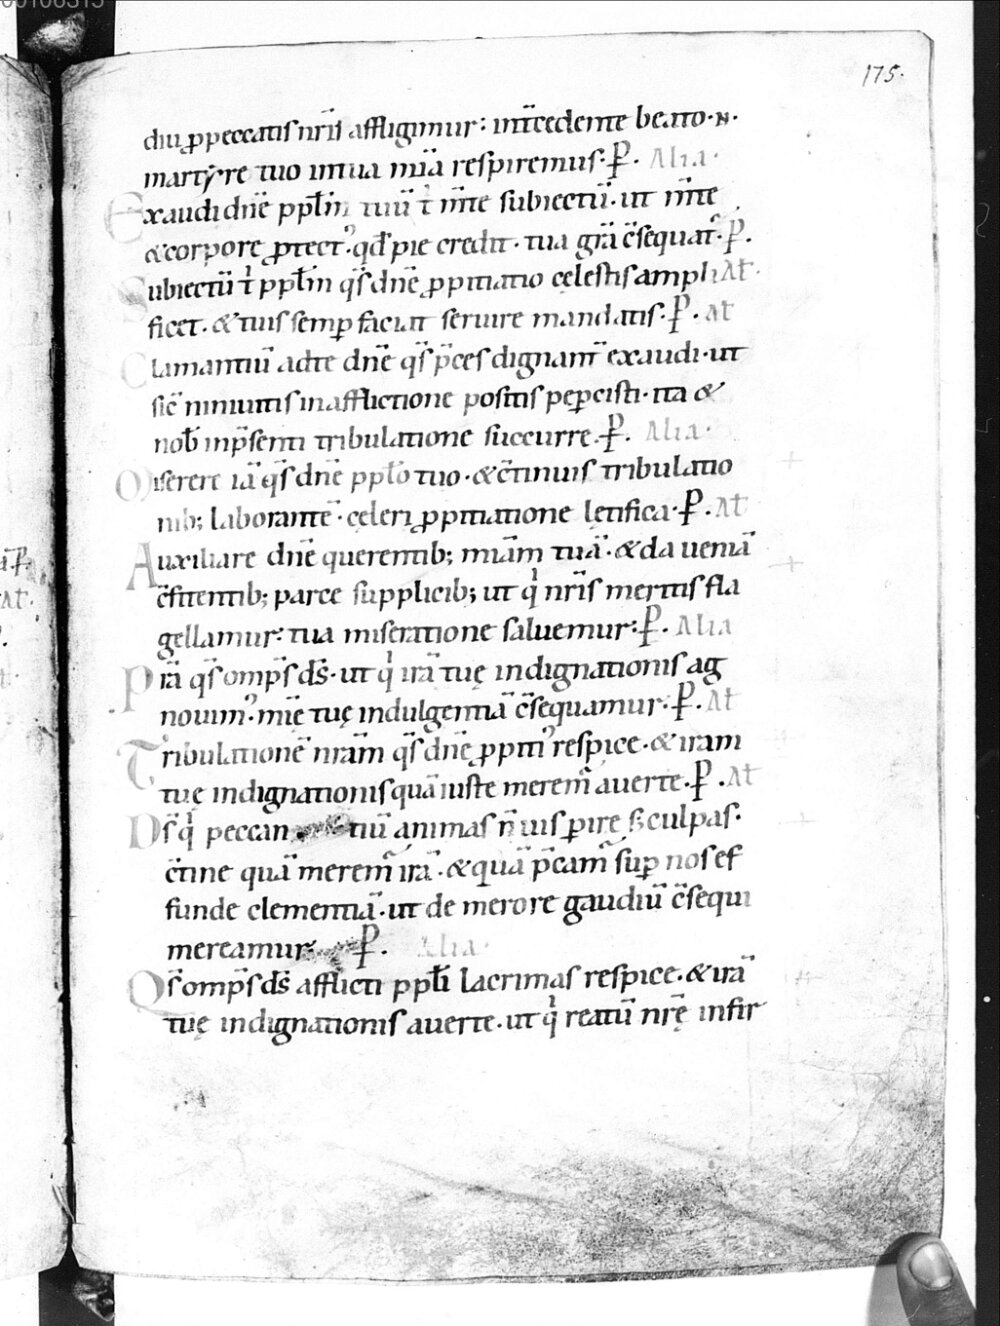 175.
diu ꝓpeccatis nr̄is affligimur: int̄cedente beato·N·
martẏre tuo intua mīa respiremus·P̱. Alia·
Exaudi dn̄e ppl̄m tuū t̄ mēte subiectū· ut mēte
&corpore ꝓtect᷒·qd̄ pie credit· tua grā c̄sequat᷒·P̱.
Subiectū t̄ ppl̄m q̄s dn̄e ꝓpitiatio cęlestis ampli Al̄·
ficet·&tuis semp̱ faciat seruire mandatis·P̱· Al̄
Clamantiū adte dn̄e q̄s p̄ces dignant̄ exaudi·ut
sic̄ niniuitis inafflictione positis pep̱cisti·ita &
nob̄ inp̄senti tribulatione succurre·P̱. Alia·
Miserere iā q̄s dn̄e ppl̄o tuo·&c̄tinuis tribulatio
nib; laborantē·cęleri ꝓpitiatione lętifica·P̱·Al̄
Auxiliare dn̄e querentib; miām tuā·&da ueniā
c̄fitentib; parce supplicib; ut q̄ nr̄is meritis fla
gellamur: tua miseratione saluemur:P̱· Alia
Parā q̄s omp̄s ds̄·ut q̄ irā tuę indignationis ag
nouim᷒·mīę tuę indulgentiā c̄sequamur·P̱·Al̄
Tribulationē nrām q̄s dn̄e ꝓpiti᷒ respice·&iram
tuę indignationis quā iuste merem̄ auerte·P̱.Al̄
Ds̄ q̄ peccan tiū animas n̄ uis p̱ire s; culpas·
c̄tine quā merem̄ irā·&quā p̄cam̄ sup̱ nos ef
funde clementiā·ut de merore gaudiū c̄sequi
mereamur· P̱. Alia·
Qs̄ omp̄s ds̄ afflicti ppl̄i lacrimas respice·&irā
tuę indignationis auerte·ut q̄ reatū nr̄ę infir